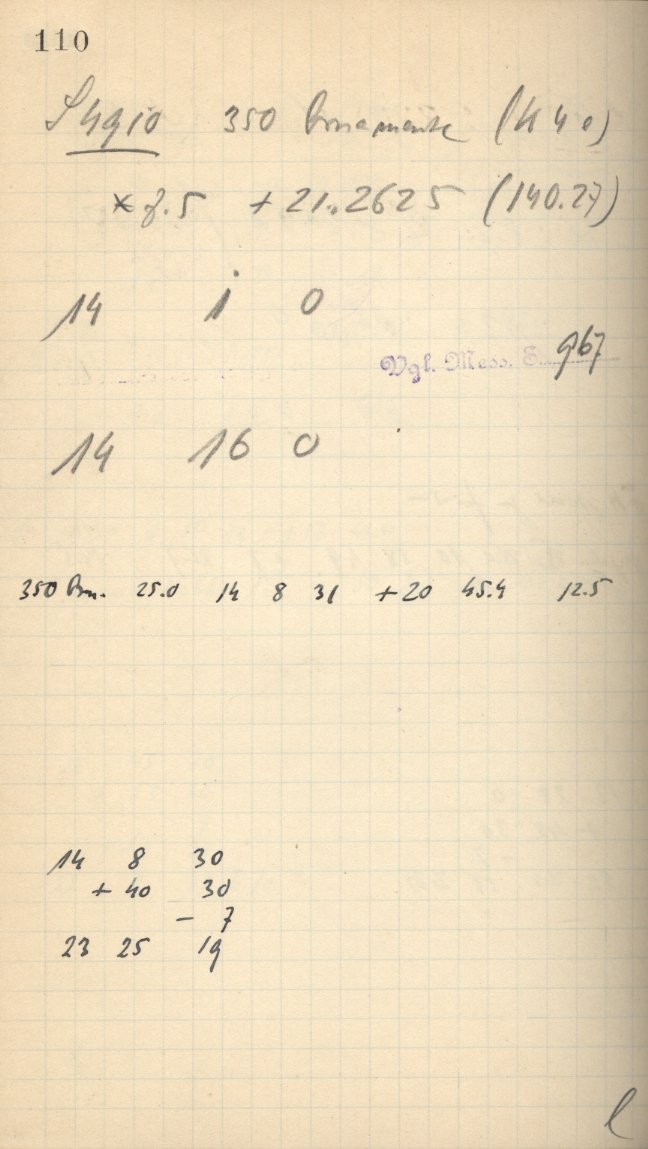 110
S4910 350 Ornamenta (44 0)
* 8.5 +21.2625 (140.27)
14 1 0
Vgl. Mess. 967
14 16 0
350 Orn. 25.0 14 8 31 +20 45.4 12.5
14 8 30
+ 40 30
- 7
23 25 19